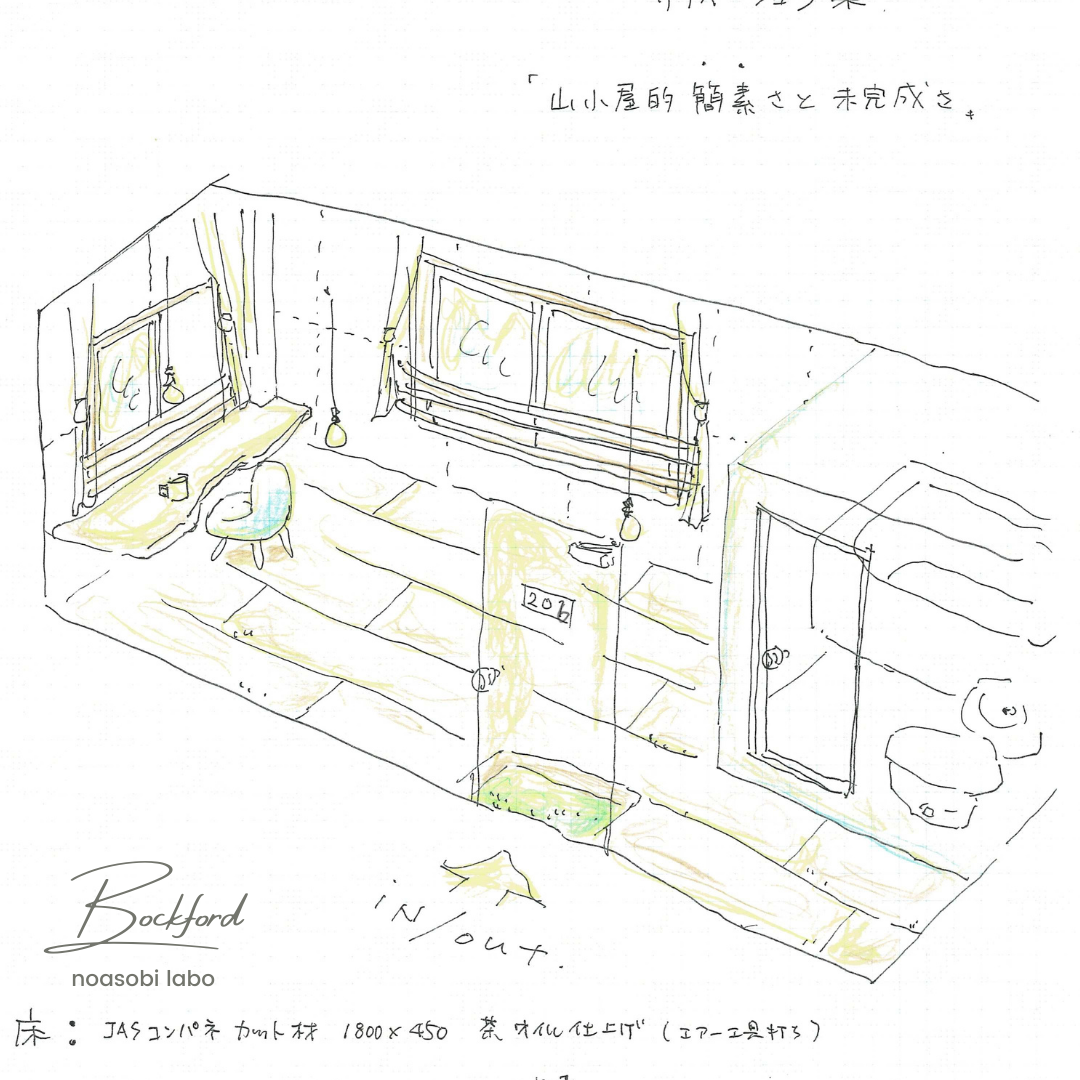 「山小屋的 簡素さと 未完成さ。
206
iN/out.
Bockford
noasobi labo
床： JASコンパネ カット材 1800×450 茶オイル仕上げ (エアー工具打ち)